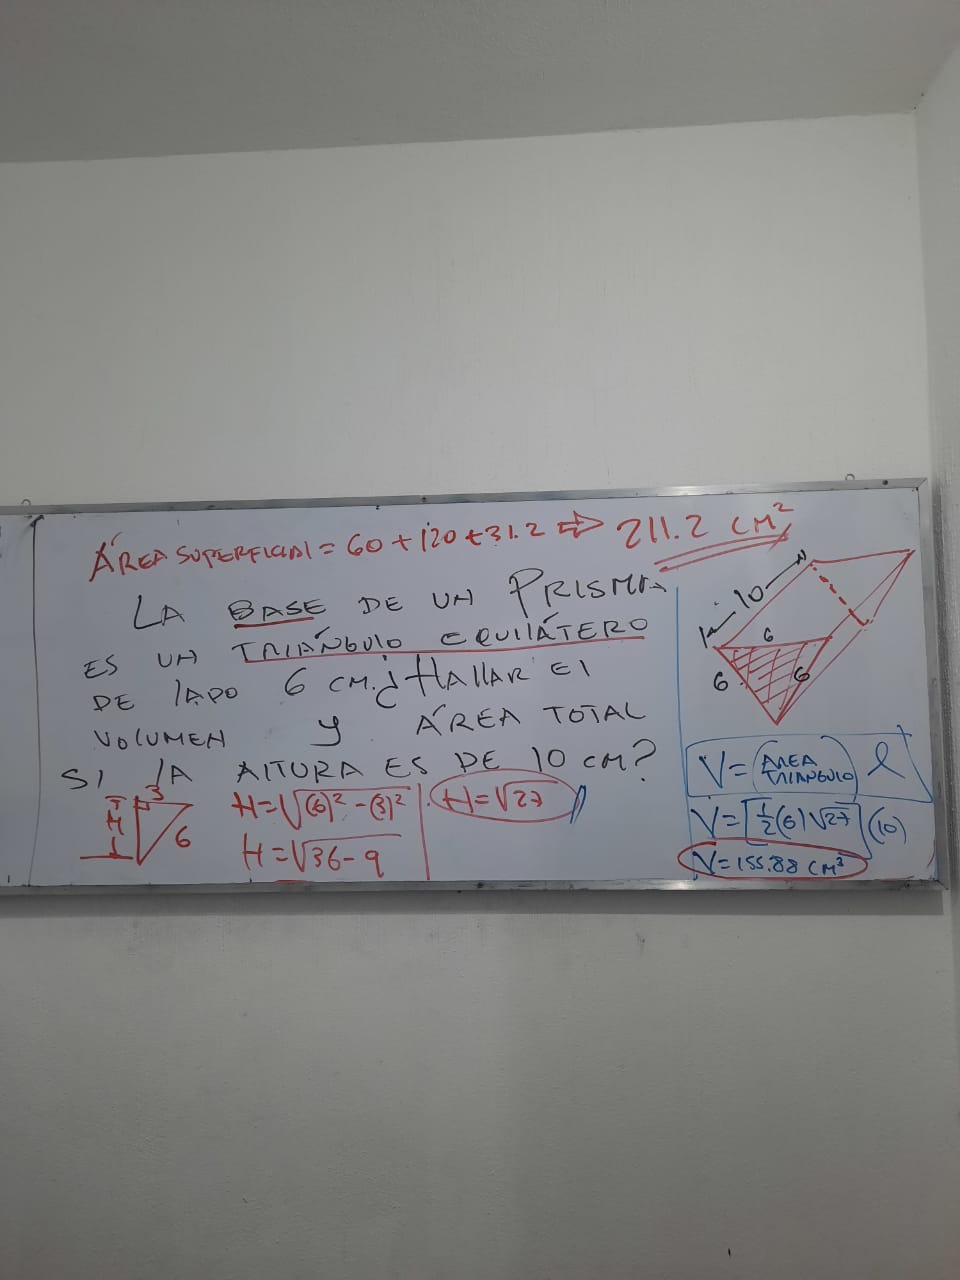 ÁREA SUPERFICIAL = 60 + 120 + 31.2 ⇒ 211.2 CM²
LA BASE DE UN PRISMA
ES UN TRIÁNGULO EQUILÁTERO
DE LADO 6 CM. ¿HALLAR EL
VOLUMEN Y ÁREA TOTAL
SI LA ALTURA ES DE 10 CM?
3
H
6
H = √(6)² - (3)²
H = √36 - 9
H = √27
10
6
6
6
V = (ÁREA TRIÁNGULO) l
V = [1/2 (6) √27] (10)
V = 155.88 CM³